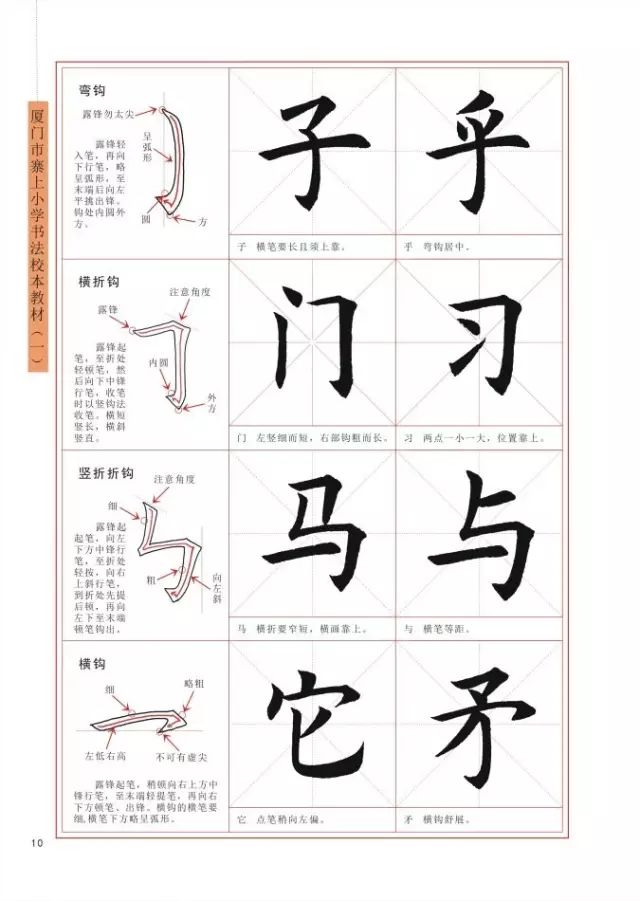 厦门市寨上小学书法校本教材（一）
弯钩
露锋勿太尖
呈弧形
露锋轻
入笔，再向
下行笔，略
呈弧形，至
末端后向左
平挑出锋。
钩处内圆外
方。
圆
方
子
子 横笔要长且须上靠。
乎
乎 弯钩居中。
横折钩
注意角度
露锋
露锋起
笔，至折处
轻顿笔，然
后向下中锋
行笔，收笔
时以竖钩法
收笔。横短
竖长，横斜
竖直。
内圆
外方
门
门 左竖细而短，右部钩粗而长。
习
习 两点一小一大，位置靠上。
竖折折钩
注意角度
细
露锋起
起笔，向左
下方中锋行
笔，至折处
轻按，向右
上斜行笔，
到折处先提
后顿，再向
左下至末端
顿笔钩出。
粗
向左斜
马
马 横折要窄短，横画靠上。
与
与 横笔等距。
横钩
细
略粗
左低右高
不可有虚尖
露锋起笔，稍顿向右上方中
锋行笔，至末端轻提笔，再向右
下方顿笔、出锋。横钩的横笔要
细，横笔下方略呈弧形。
它
它 点笔稍向左偏。
矛
矛 横钩舒展。
10